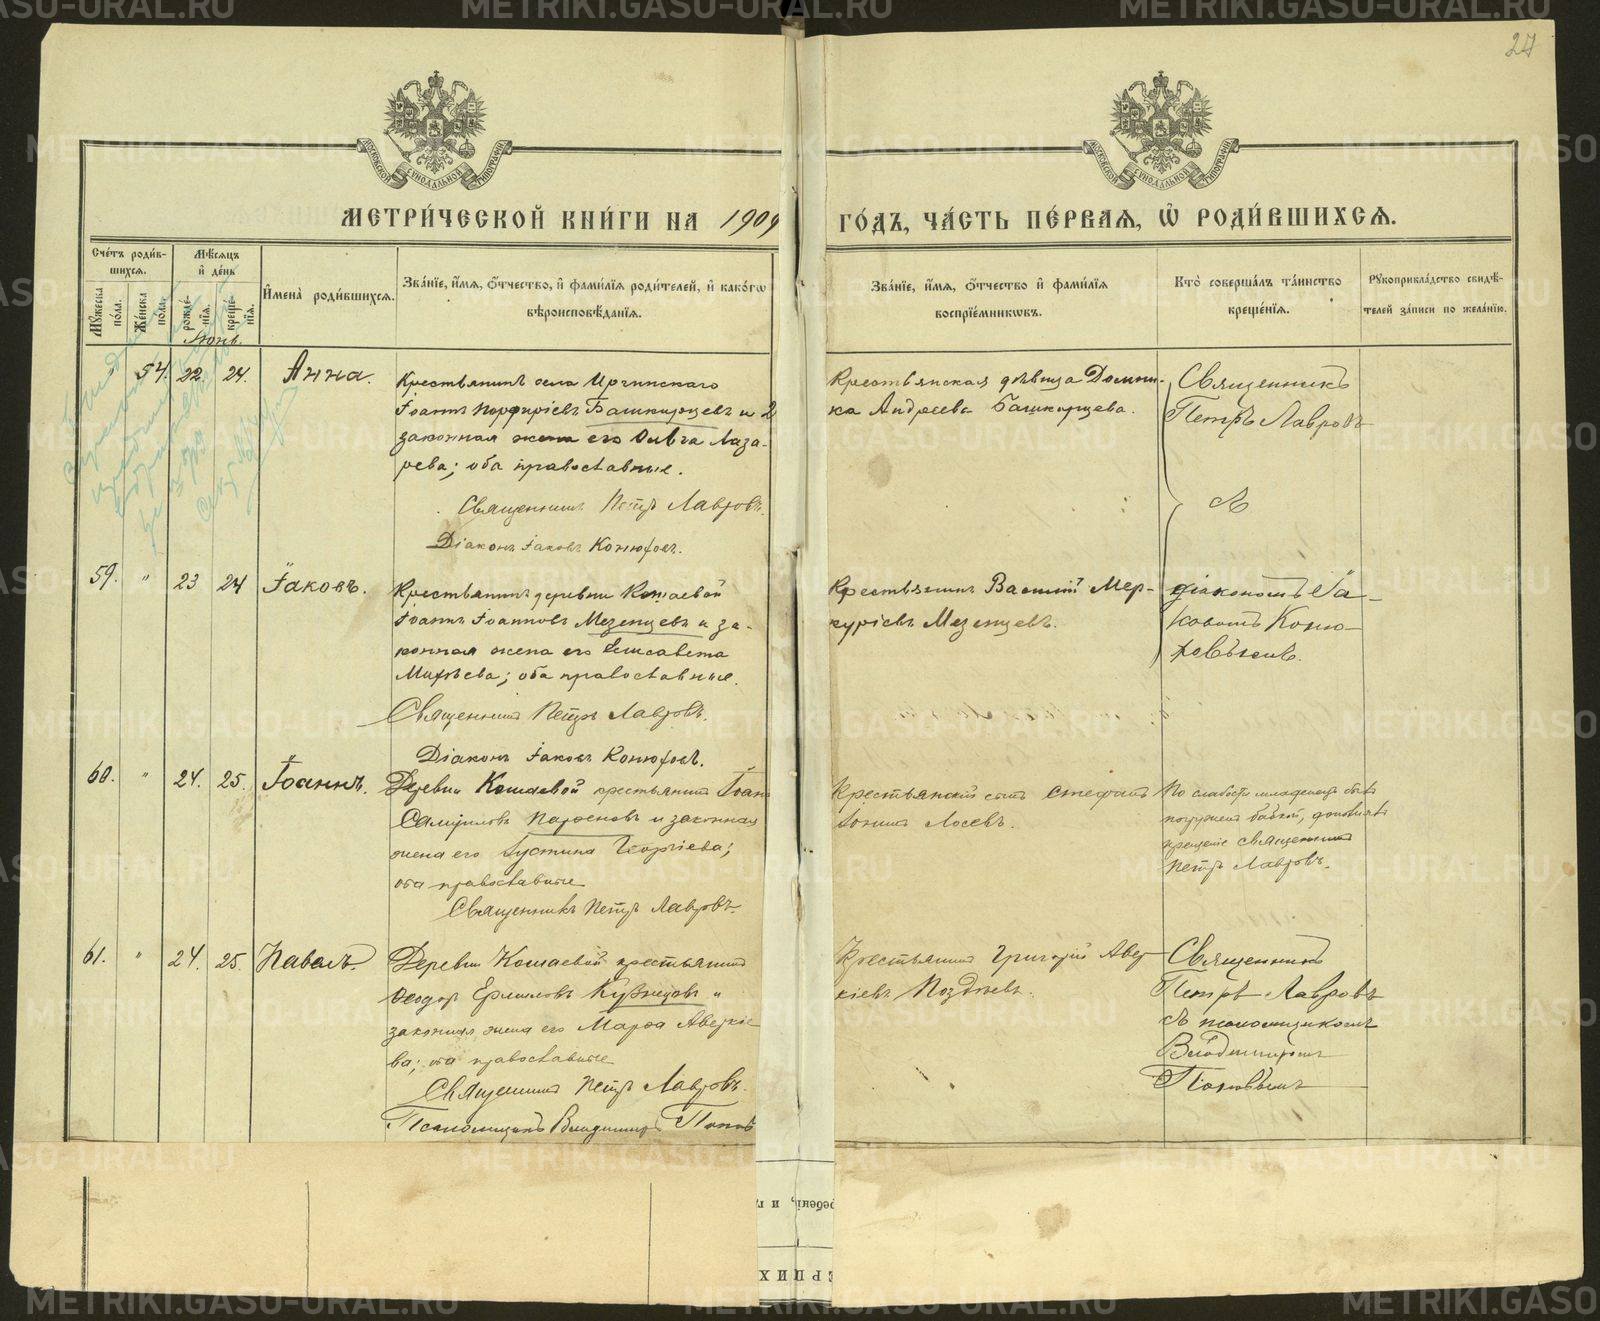 27
МОСКОВСКОЙ СѴНОДАЛЬНОЙ ТИПОГРАФІИ
МОСКОВСКОЙ СѴНОДАЛЬНОЙ ТИПОГРАФІИ
МЕТРИ́ЧЕСКОЙ КНИ́ГИ НА 1909 ГО́ДЪ, ЧА́СТЬ ПЕ́РВАЯ, Ѡ РОДИ́ВШИХСЯ.
Сче́тъ роди́в-
шихся.
Мꙋжеска по́ла.
Же́нска по́ла.
Мѣ́сяцъ
и де́нь
рожде́-
нія.
креще́-
нія.
Имена̀ роди́вшихся.
Зва́ніе, и́мя, ѻ́тчество, и фами́лія роди́телей, и како́гѡ
вѣроисповѣ́данія.
Зва́ніе, и́мя, ѻ́тчество и фами́лія
воспріе́мникѡвъ.
Кто̀ соверша́лъ та́инство
креще́нія.
Рꙋкоприкла́дство свидѣ́-
телей за́писи по жела́нію.
Іюнь.
54. 22 24. Анна.
Крестьянинъ села Иргинскаго
Іоаннъ Порфиріевъ Башкирцевъ и
законная жена его Ольга Лаза-
рева; оба православные.
Священникъ Петръ Лавровъ.
Діаконъ Іаковъ Конюховъ.
Крестьянская дѣвица Домни-
ка Андреева Башкирцева.
Священникъ
Петръ Лавровъ
59. " 23 24 Іаковъ.
Крестьянинъ деревни Кошаевой
Іоаннъ Іоанновъ Мезенцевъ и за-
конная жена его Елисавета
Михѣева; оба православные.
Священникъ Петръ Лавровъ.
Діаконъ Іаковъ Конюховъ.
Крестьянинъ Василій Мер-
куріевъ Мезенцевъ.
діакономъ Іа-
ковомъ Коню-
ховымъ.
60. " 24. 25. Іоаннъ.
Деревни Кошаевой крестьянинъ Іоаннъ
Самуиловъ Парѳеновъ и законная
жена его Іустина Георгіева;
оба православные
Священникъ Петръ Лавровъ.
Крестьянскій сынъ Стефанъ
Іонинъ Лосевъ.
По слабости младенецъ былъ
погруженъ бабкой, дополнилъ
крещеніе священникъ
Петръ Лавровъ.
61. " 24. 25. Павелъ.
Деревни Кошаевой крестьянинъ
Ѳеодоръ Ермиловъ Кузнецовъ и
законная жена его Марѳа Аверкіе
ва; оба православные
Священникъ Петръ Лавровъ.
Псаломщикъ Владимиръ Поповъ
Крестьянинъ Григорій Авер
кіевъ Поздѣевъ.
Священникъ
Петръ Лавровъ
съ псаломщикомъ
Владимиромъ
Поповымъ
METRIKI.GASO-URAL.RU